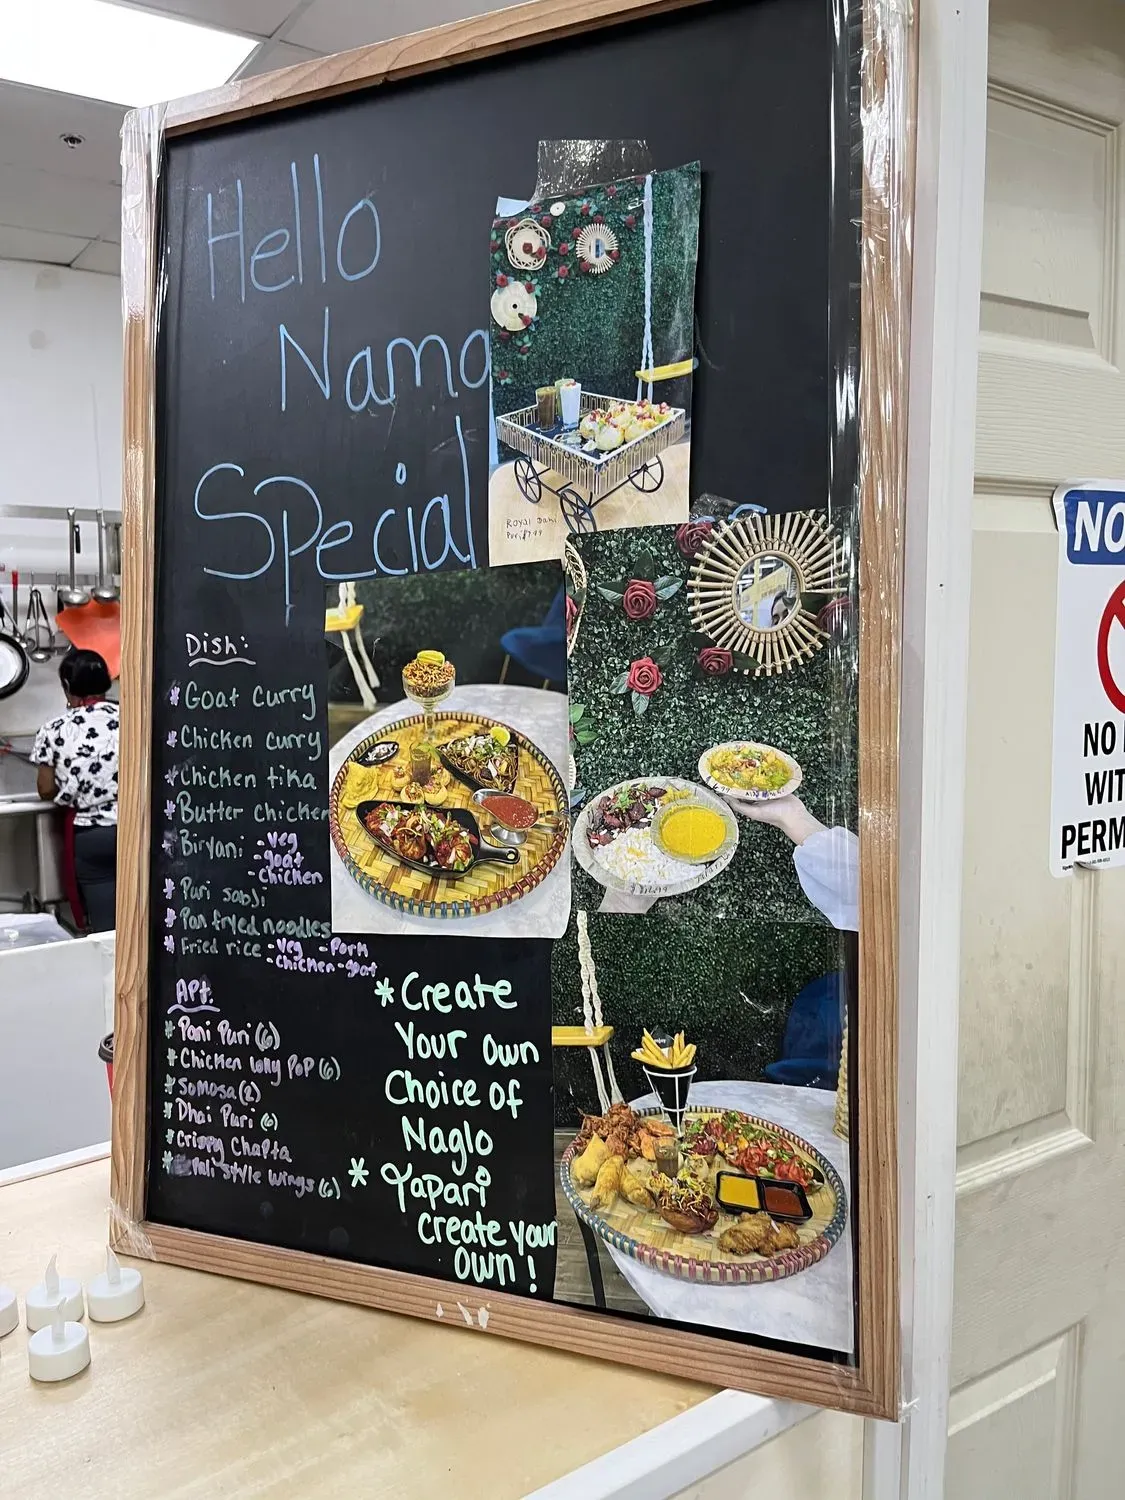 Hello
Nama
Special
ROYAL Dahi
Puri $7.99
Dish:
* Goat curry
* Chicken curry
* Chicken tika
* Butter chicken
* Biryani - Veg
- goat
- Chicken
* Puri sabji
* Pan fried noodles
* Fried rice - Veg - Pork
- Chicken - goat
Apt.
* Pani Puri (6)
* Chicken lolly PoP (6)
* Somosa (2)
* Dhai Puri (6)
* Crispy Chapta
* Style wings (6)
* Create
Your own
Choice of
Naglo
* Yapari
create your
own!
NO
NO
WIT
PERM